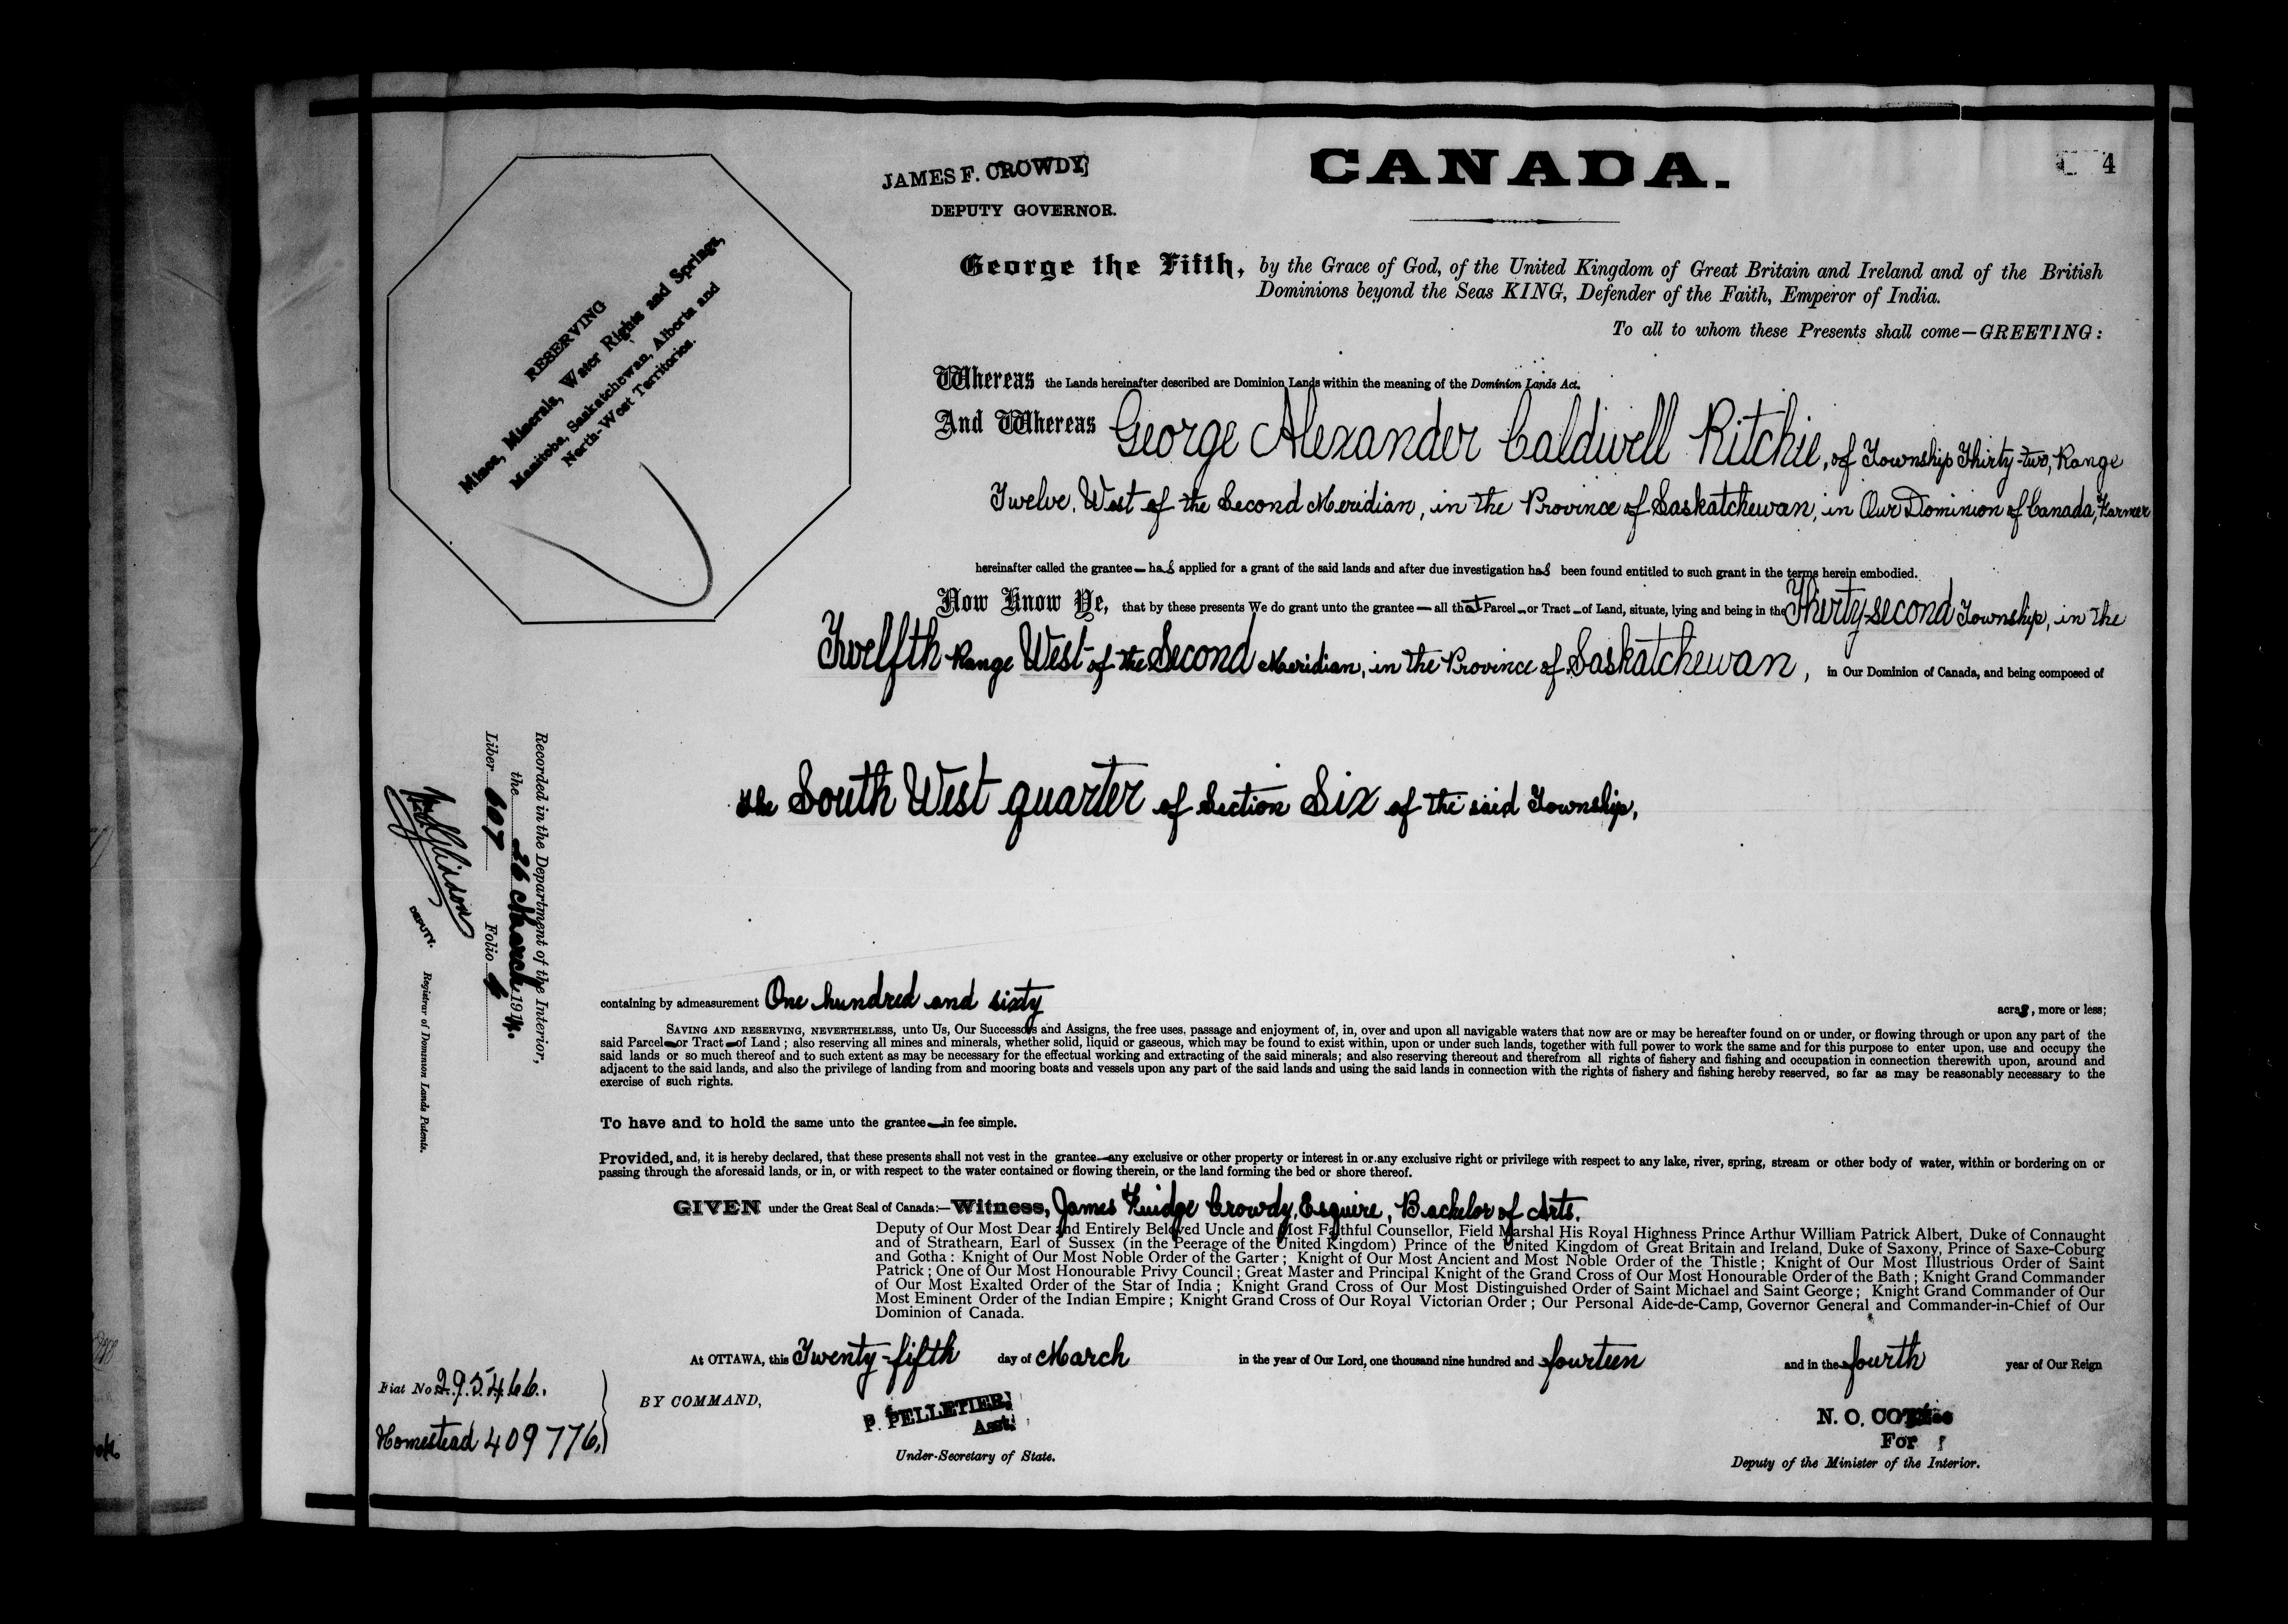 JAMES F. CROWDY
DEPUTY GOVERNOR.
CANADA.
4
RESERVING
Mines, Minerals, Water Rights and Springs,
Manitoba, Saskatchewan, Alberta and
North-West Territories.
George the Fifth, by the Grace of God, of the United Kingdom of Great Britain and Ireland and of the British
Dominions beyond the Seas KING, Defender of the Faith, Emperor of India.
To all to whom these Presents shall come—GREETING:
Whereas the Lands hereinafter described are Dominion Lands within the meaning of the Dominion Lands Act.
And Whereas George Alexander Caldwell Ritchie, of Township Thirty-two, Range
Twelve, West of the Second Meridian, in the Province of Saskatchewan, in Our Dominion of Canada, Farmer
hereinafter called the grantee— has applied for a grant of the said lands and after due investigation has been found entitled to such grant in the terms herein embodied.
Now Know Ye, that by these presents We do grant unto the grantee — all that Parcel — or Tract — of Land, situate, lying and being in the Thirty-second Township, in the
Twelfth Range West of the Second Meridian, in the Province of Saskatchewan, in Our Dominion of Canada, and being composed of
the South West quarter of Section Six of the said Township,
containing by admeasurement One hundred and sixty acres, more or less;
SAVING AND RESERVING, NEVERTHELESS, unto Us, Our Successors and Assigns, the free uses, passage and enjoyment of, in, over and upon all navigable waters that now are or may be hereafter found on or under, or flowing through or upon any part of the
said Parcel—or Tract—of Land; also reserving all mines and minerals, whether solid, liquid or gaseous, which may be found to exist within, upon or under such lands, together with full power to work the same and for this purpose to enter upon, use and occupy the
said lands or so much thereof and to such extent as may be necessary for the effectual working and extracting of the said minerals; and also reserving thereout and therefrom all rights of fishery and fishing and occupation in connection therewith upon, around and
adjacent to the said lands, and also the privilege of landing from and mooring boats and vessels upon any part of the said lands and using the said lands in connection with the rights of fishery and fishing hereby reserved, so far as may be reasonably necessary to the
exercise of such rights.
To have and to hold the same unto the grantee—in fee simple.
Provided, and, it is hereby declared, that these presents shall not vest in the grantee—any exclusive or other property or interest in or any exclusive right or privilege with respect to any lake, river, spring, stream or other body of water, within or bordering on or
passing through the aforesaid lands, or in, or with respect to the water contained or flowing therein, or the land forming the bed or shore thereof.
GIVEN under the Great Seal of Canada:—Witness, James Fuidge Crowdy, Esquire, Bachelor of Arts.
Deputy of Our Most Dear and Entirely Beloved Uncle and Most Faithful Counsellor, Field Marshal His Royal Highness Prince Arthur William Patrick Albert, Duke of Connaught
and of Strathearn, Earl of Sussex (in the Peerage of the United Kingdom) Prince of the United Kingdom of Great Britain and Ireland, Duke of Saxony, Prince of Saxe-Coburg
and Gotha: Knight of Our Most Noble Order of the Garter; Knight of Our Most Ancient and Most Noble Order of the Thistle; Knight of Our Most Illustrious Order of Saint
Patrick; One of Our Most Honourable Privy Council; Great Master and Principal Knight of the Grand Cross of Our Most Honourable Order of the Bath; Knight Grand Commander
of Our Most Exalted Order of the Star of India; Knight Grand Cross of Our Most Distinguished Order of Saint Michael and Saint George; Knight Grand Commander of Our
Most Eminent Order of the Indian Empire; Knight Grand Cross of Our Royal Victorian Order; Our Personal Aide-de-Camp, Governor General and Commander-in-Chief of Our
Dominion of Canada.
At OTTAWA, this Twenty-fifth day of March in the year of Our Lord, one thousand nine hundred and fourteen and in the fourth year of Our Reign
BY COMMAND,
P. PELLETIER,
Asst.
Under-Secretary of State.
N. O. COTE
For
Deputy of the Minister of the Interior.
Fiat No 295466.
Homestead 409776.
Recorded in the Department of the Interior,
the 26 March 1914.
Liber 607 Folio 4
DEPUTY.
Registrar of Dominion Lands Patents.